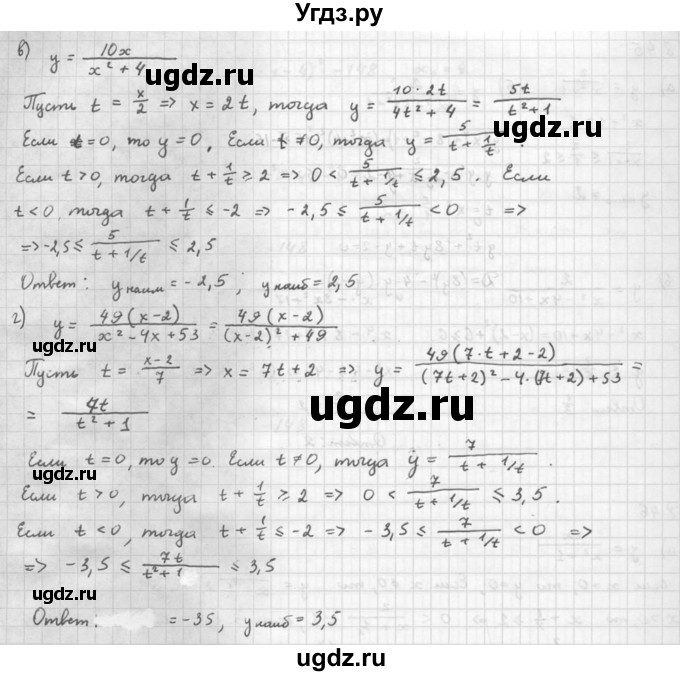 Угдз.ру
в) y = 10x / (x² + 4)
ugdz.ru
Пусть t = x/2 => x = 2t, тогда y = (10·2t) / (4t² + 4) = 5t / (t² + 1)
Если t = 0, то y = 0, Если t ≠ 0, тогда y = 5 / (t + 1/t).
Если t > 0, тогда t + 1/t ≥ 2 => 0 < 5 / (t + 1/t) ≤ 2,5. Если
ugdz.ru ugdz.ru
t < 0, тогда t + 1/t ≤ -2 => -2,5 ≤ 5 / (t + 1/t) < 0 =>
=> -2,5 ≤ 5 / (t + 1/t) ≤ 2,5
Ответ: y наим = -2,5; y наиб = 2,5
г) y = 49(x-2) / (x² - 4x + 53) = 49(x-2) / ((x-2)² + 49)
ugdz.ru
Пусть t = (x-2)/7 => x = 7t + 2 => y = 49(7·t + 2 - 2) / ((7t+2)² - 4·(7t+2) + 53) =
= 7t / (t² + 1)
ugdz.ru
Если t = 0, то y = 0. Если t ≠ 0, тогда y = 7 / (t + 1/t).
ugdz.ru
Если t > 0, тогда t + 1/t ≥ 2 => 0 < 7 / (t + 1/t) ≤ 3,5.
ugdz.ru
Если t < 0, тогда t + 1/t ≤ -2 => -3,5 ≤ 7 / (t + 1/t) < 0 =>
=> -3,5 ≤ 7t / (t² + 1) ≤ 3,5
ugdz.ru
Ответ: = -35, y наиб = 3,5
ugdz.ru